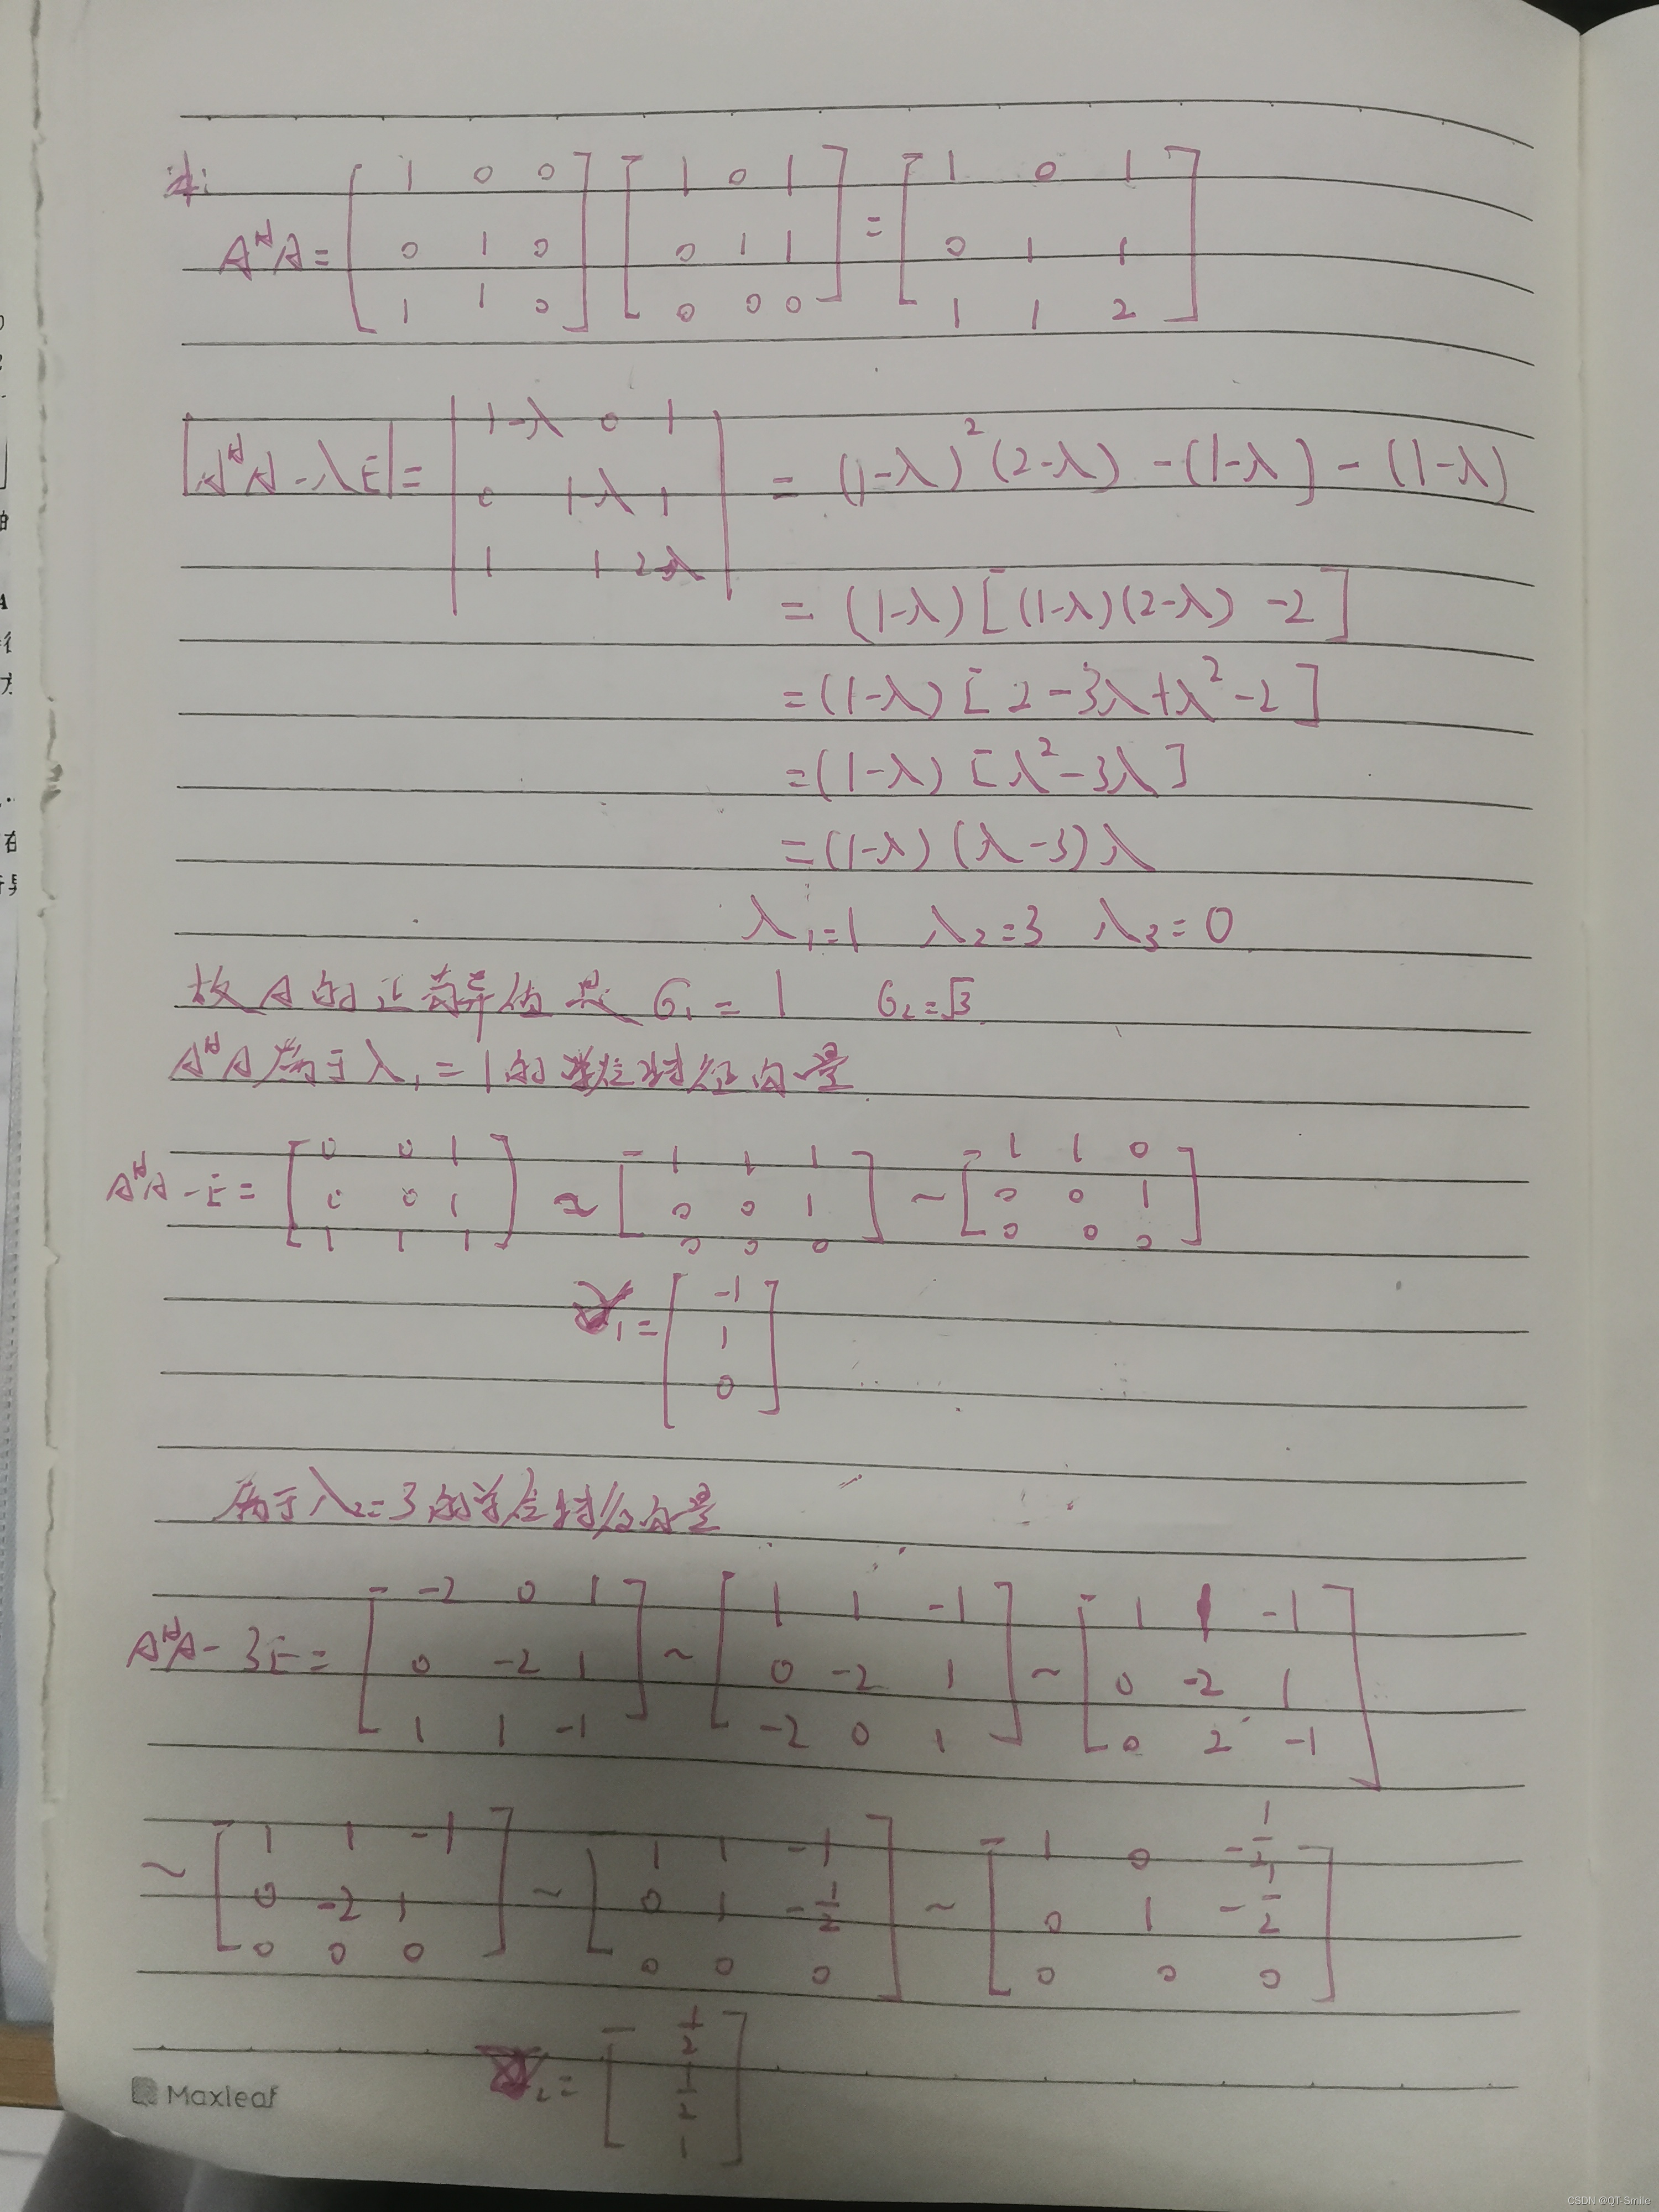 解:
A^H A = [1 0 0; 0 1 0; 1 1 0] [1 0 1; 0 1 1; 0 0 0] = [1 0 1; 0 1 1; 1 1 2]
|A^H A - λE| = |1-λ 0 1; 0 1-λ 1; 1 1 2-λ| = (1-λ)^2 (2-λ) - (1-λ) - (1-λ)
= (1-λ)[(1-λ)(2-λ) -2]
= (1-λ)[2-3λ+λ^2-2]
= (1-λ)[λ^2-3λ]
= (1-λ)(λ-3)λ
λ1=1 λ2=3 λ3=0
故A的正奇异值是 σ1 = 1 σ2=√3
A^H A属于λ1=1的单位特征向量
A^H A - E = [0 0 1; 0 0 1; 1 1 1] ~ [1 1 1; 0 0 1; 0 0 0] ~ [1 1 0; 0 0 1; 0 0 0]
1 = [-1; 1; 0]
属于λ2=3的单位特征向量
A^H A - 3E = [-2 0 1; 0 -2 1; 1 1 -1] ~ [1 1 -1; 0 -2 1; -2 0 1] ~ [1 1 -1; 0 -2 1; 0 2 -1]
~ [1 1 -1; 0 -2 1; 0 0 0] ~ [1 1 -1; 0 1 -1/2; 0 0 0] ~ [1 0 -1/2; 0 1 -1/2; 0 0 0]
2 = [1/2; 1/2; 1]
Maxleaf
CSDN @QT-Smile